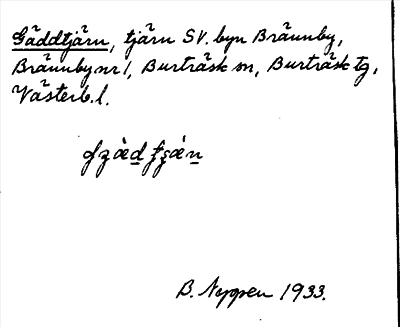 Gäddtjärn, tjärn SV. byn Brännby,
Brännby nr 1, Burträsk sn, Burträsk tg,
Västerb. l.
B. 1933.